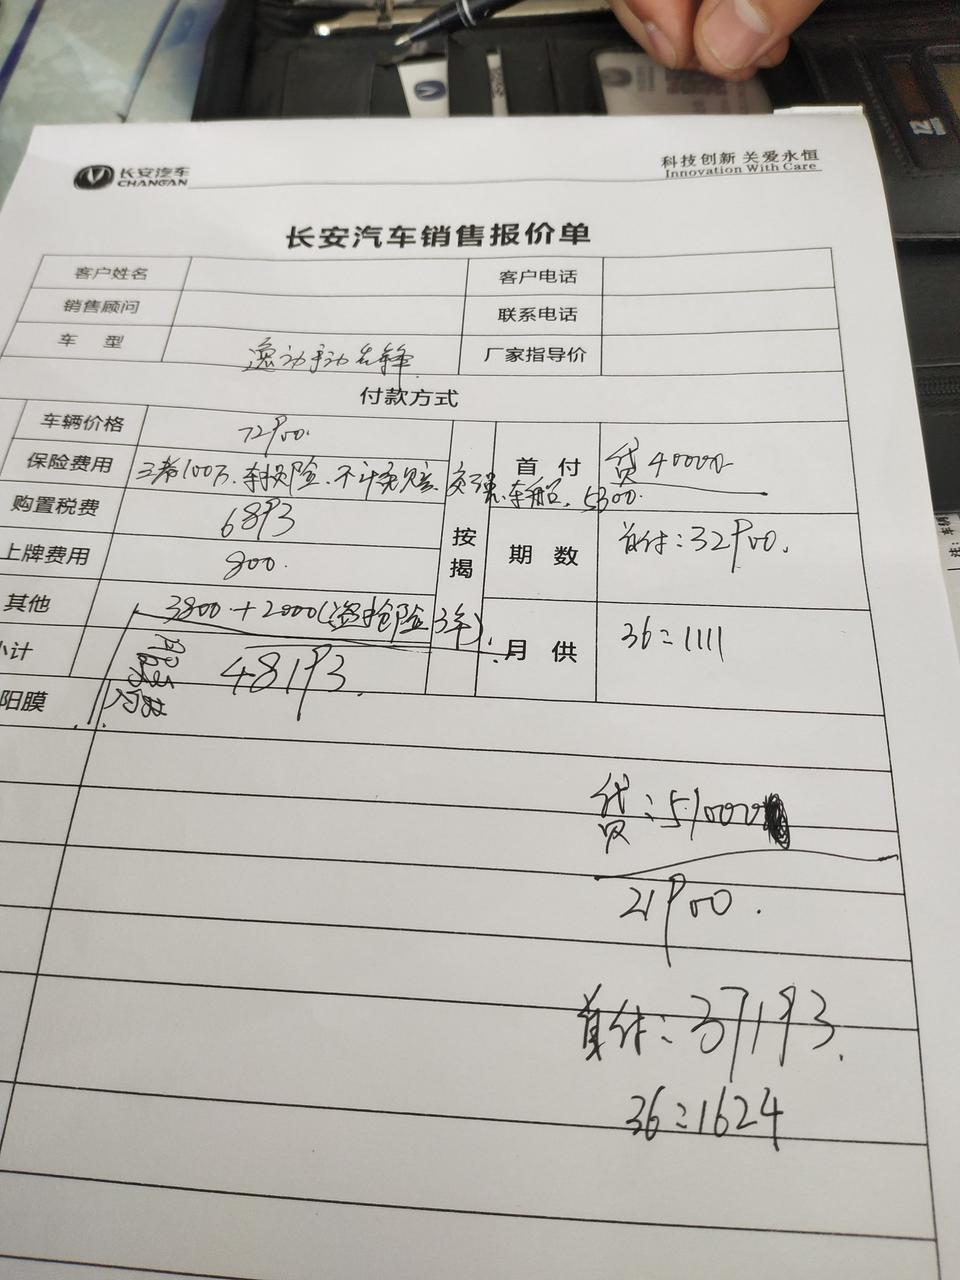 长安汽车
CHANGAN
科技创新 关爱永恒
Innovation With Care
长安汽车销售报价单
客户姓名
客户电话
销售顾问
联系电话
车 型
逸动手动先锋
厂家指导价
付款方式
车辆价格
72900.
保险费用
三者100万.车损险.不计免赔.交强.车船.5300.
购置税费
6893
上牌费用
800.
其他
3800+2000(盗抢险3年).
小计
48193.
阳膜
按揭
首 付
贷40000
期 数
首付:32900.
月 供
36=1111
贷:51000
21900.
首付:37193.
36=1624